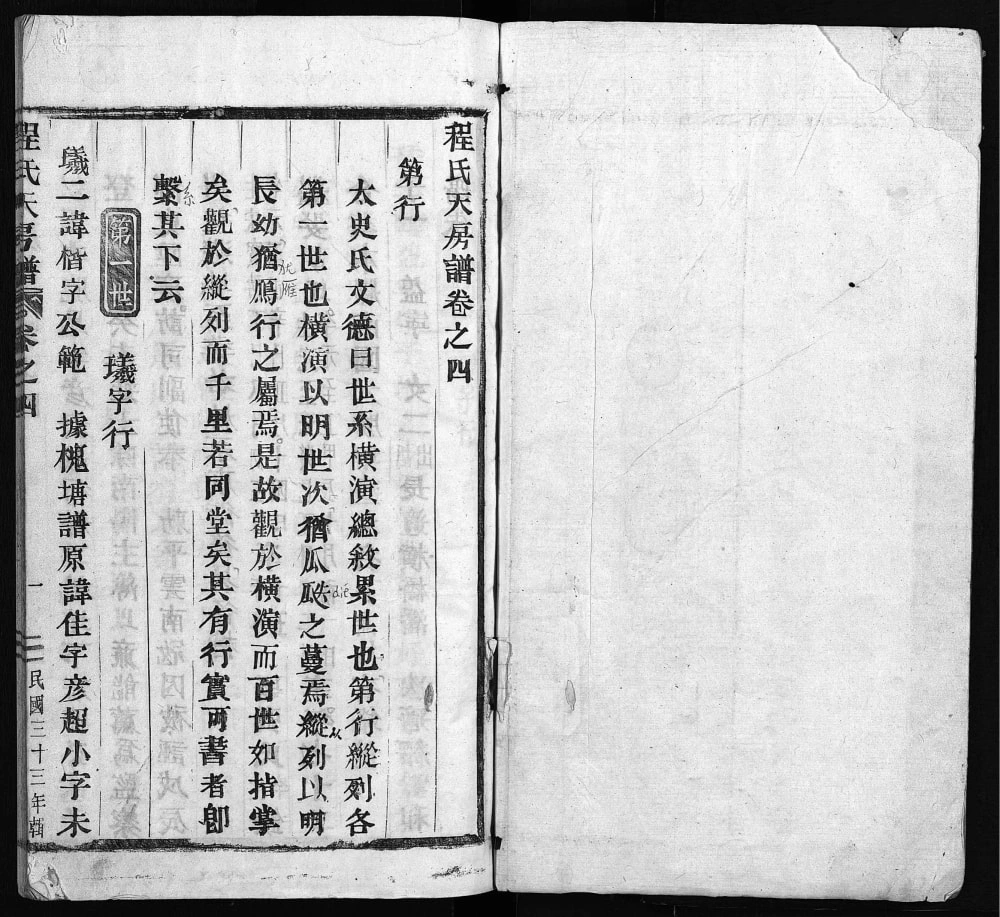 程氏天房譜卷之四
第行
太史氏文德曰世系橫演總敘累世也第行縱列各
第一世也橫演以明世次猶瓜瓞之蔓焉縱列以明
長幼猶鴈行之屬焉是故觀於橫演而百世如指掌
矣觀於縱列而千里若同堂矣其有行實可書者卽
繫其下云
第一世
璣字行
璣二諱楷字公範 據槐塘譜原諱佳字彦超小字未
程氏天房譜 卷之四 一 民國三十三年輯
die
系